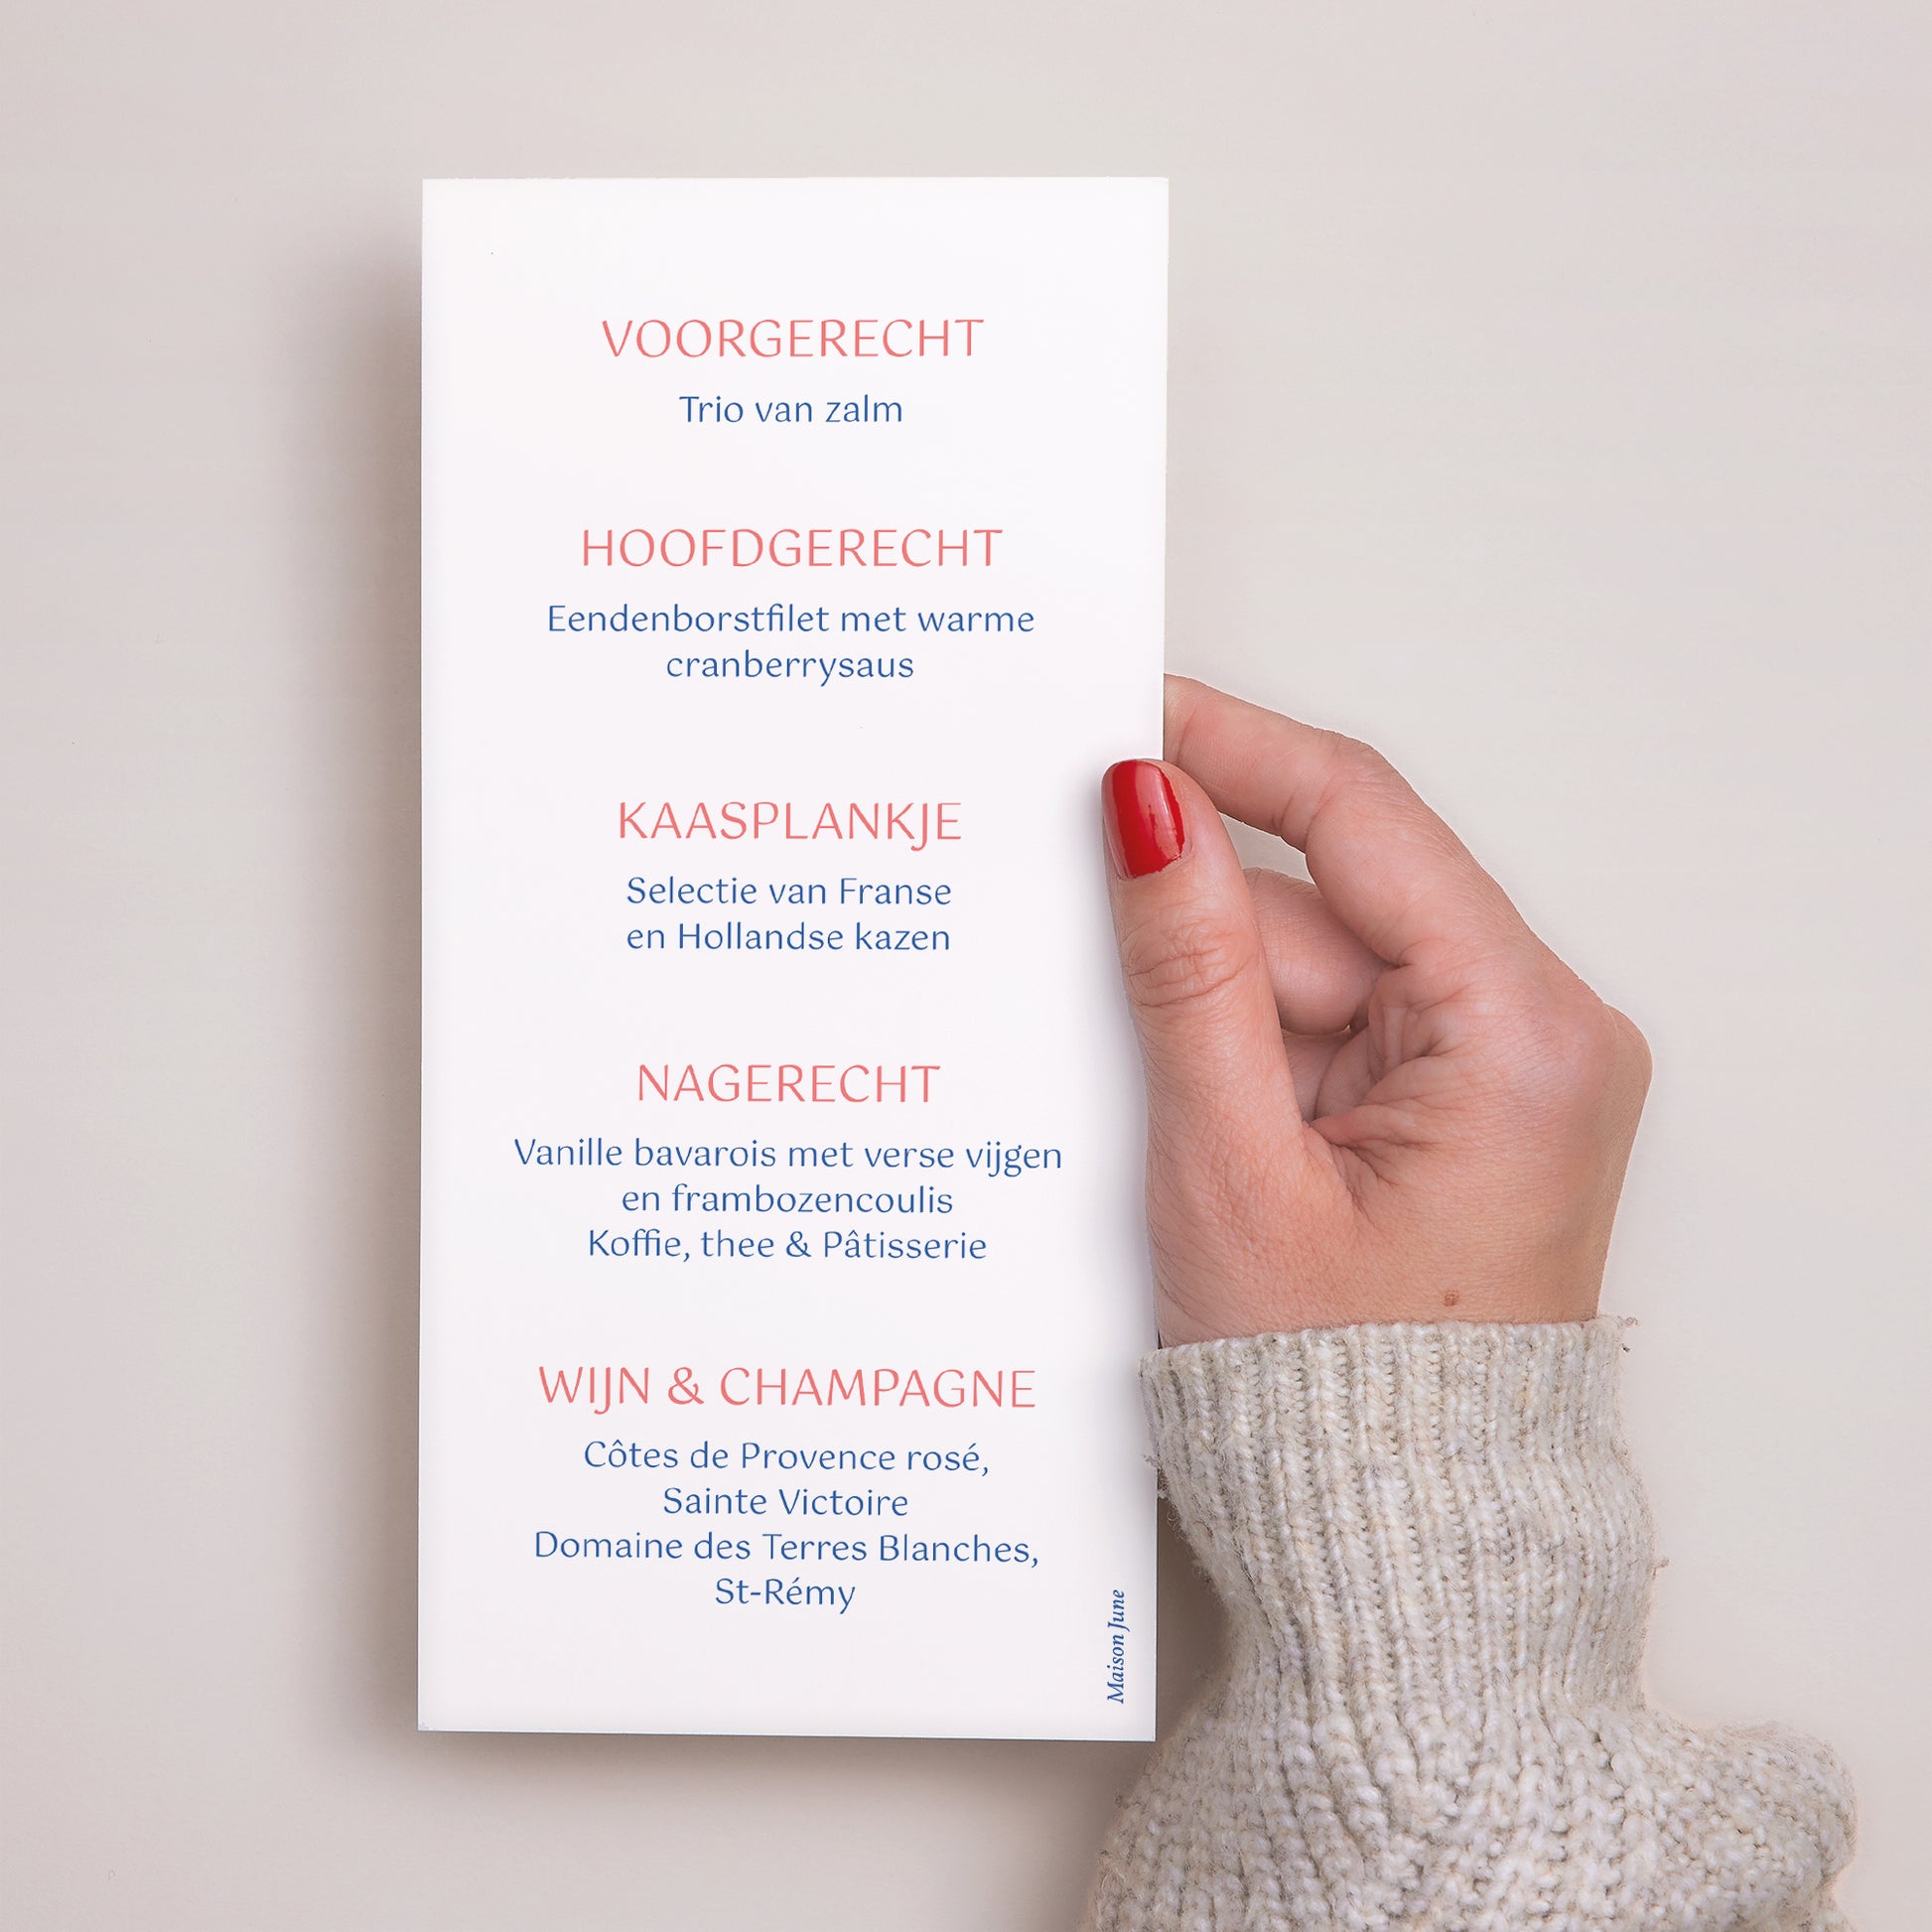 VOORGERECHT
Trio van zalm
HOOFDGERECHT
Eendenborstfilet met warme
cranberrysaus
KAASPLANKJE
Selectie van Franse
en Hollandse kazen
NAGERECHT
Vanille bavarois met verse vijgen
en frambozencoulis
Koffie, thee & Pâtisserie
WIJN & CHAMPAGNE
Côtes de Provence rosé,
Sainte Victoire
Domaine des Terres Blanches,
St-Rémy
Maison June